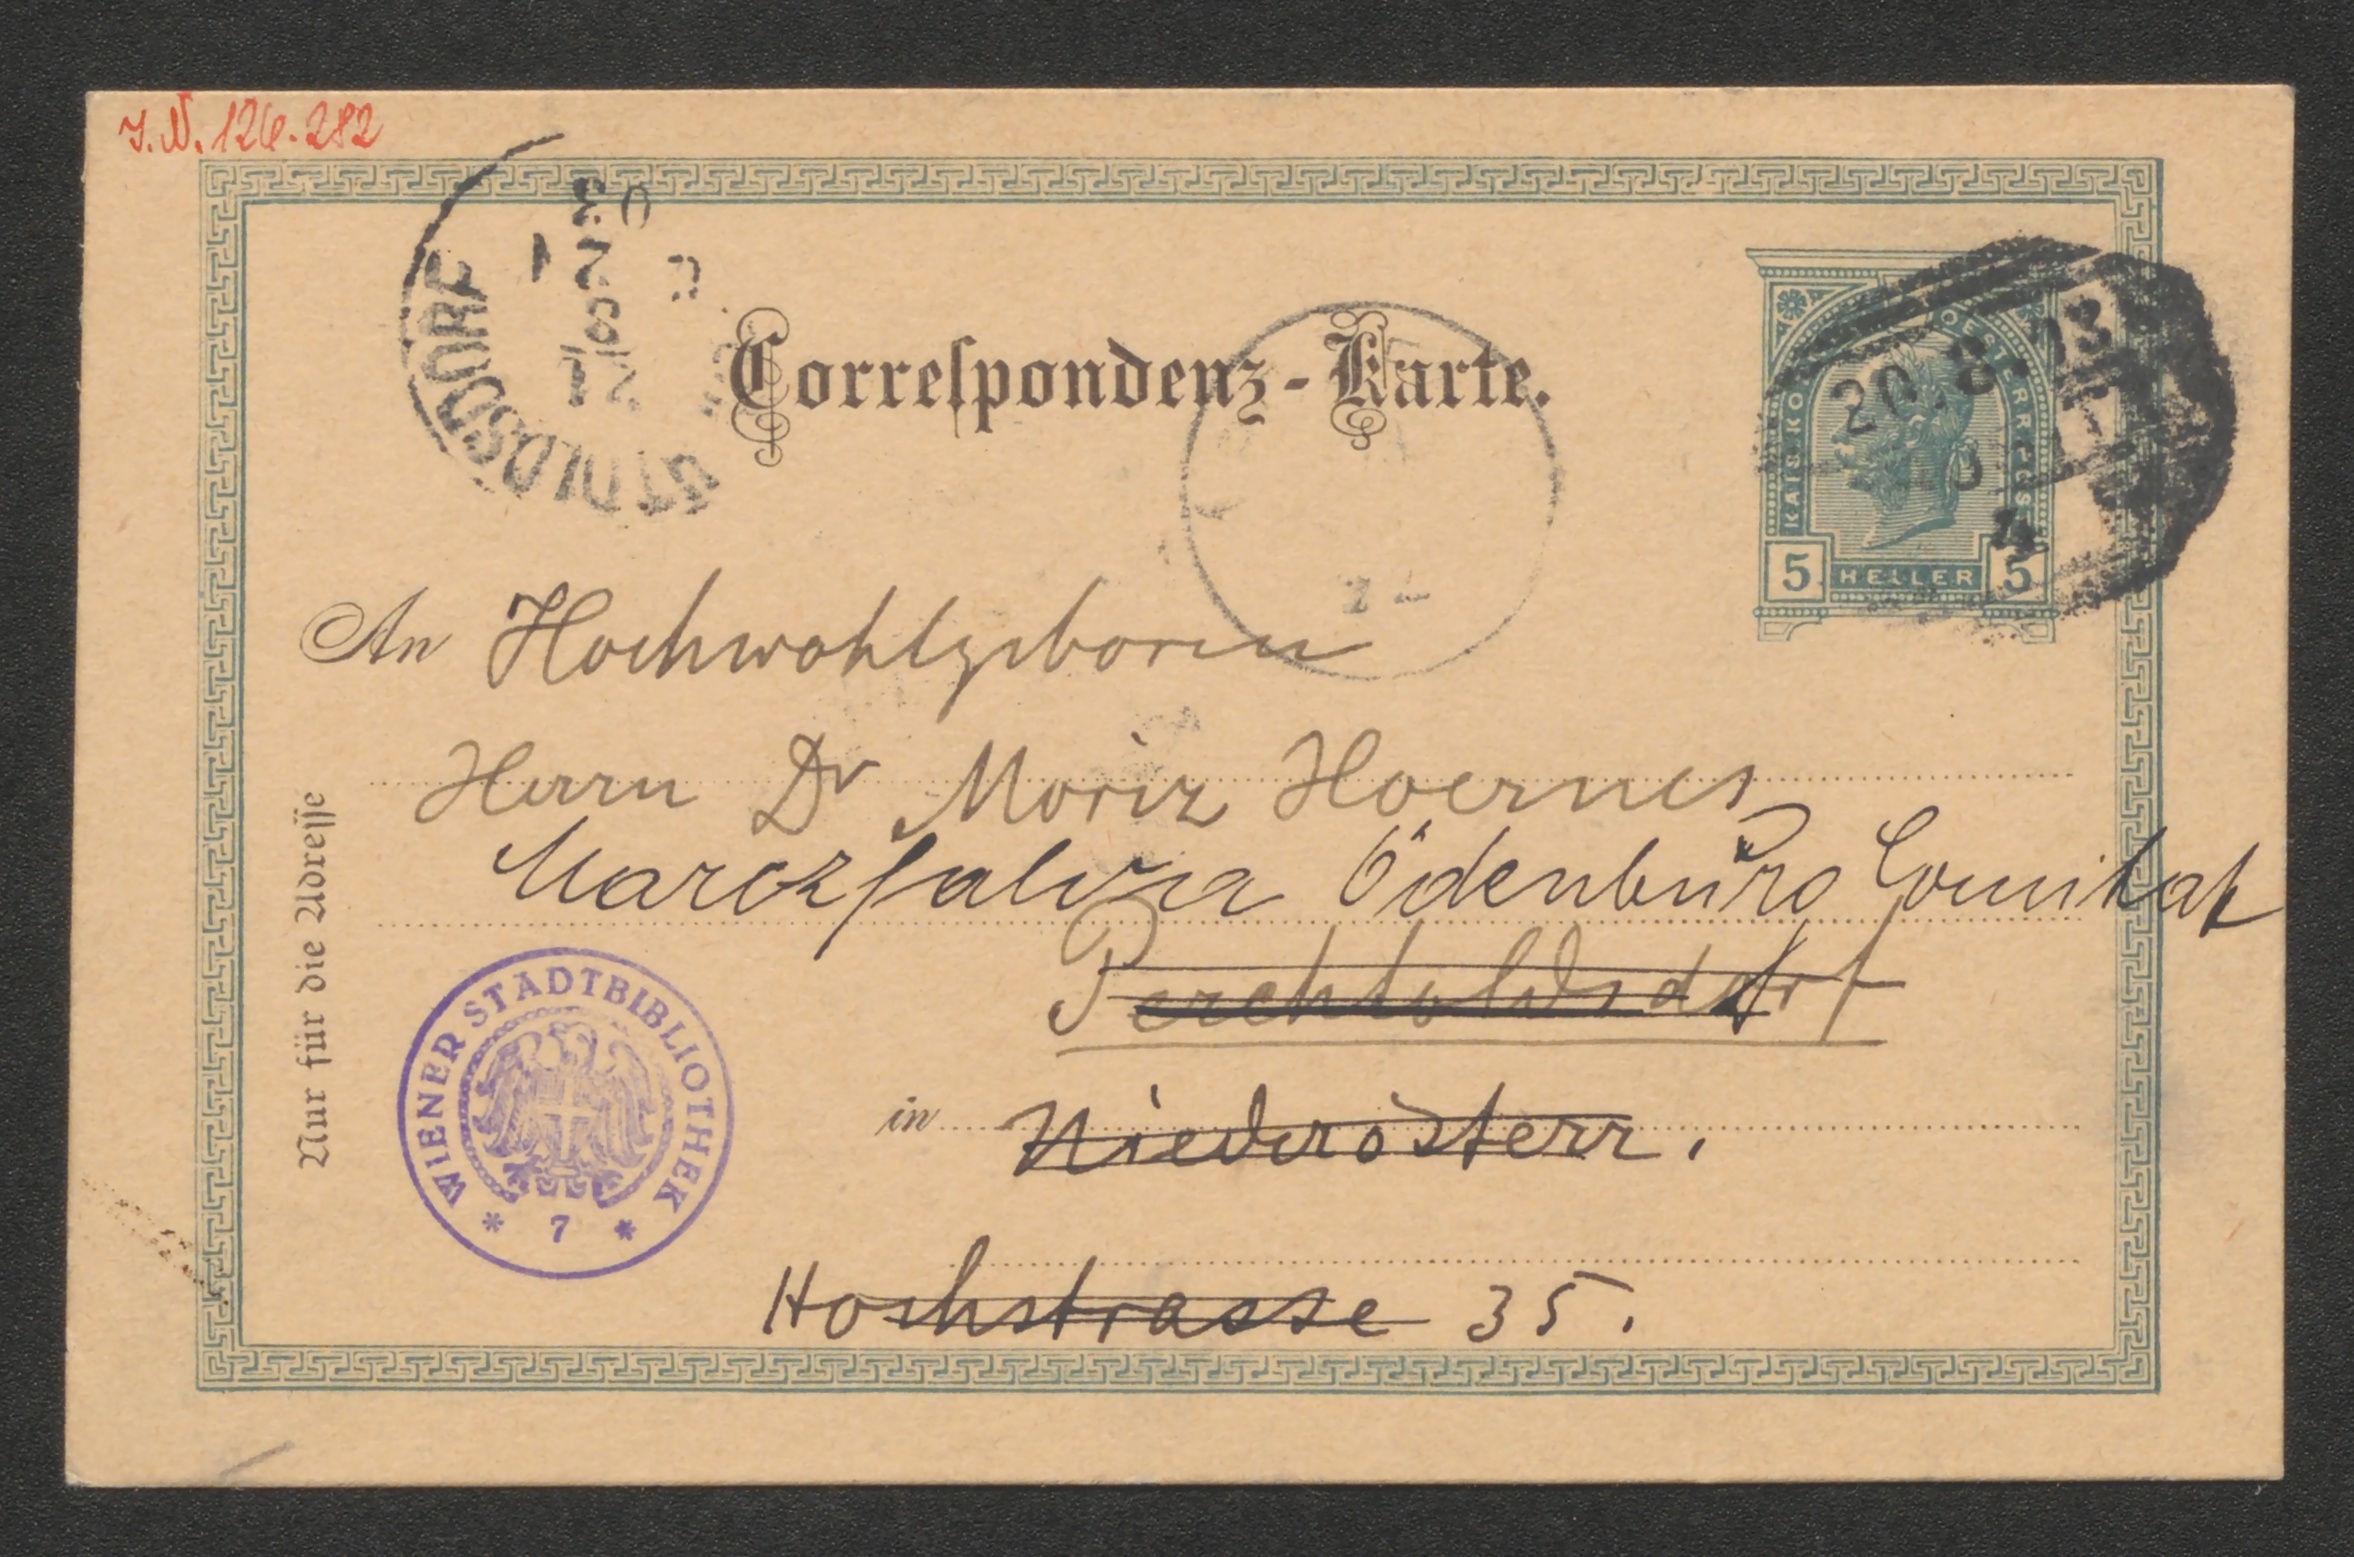 J.N. 126.282
Correspondenz-Karte.
20.8.
5 HELLER 5
An Hochwohlgeboren
Herrn Dr Moriz Hoernes
Marczfalva Ödenburg Comitat
Perchtoldsdorf
in Niederösterr.
Hochstrasse 35.
Nur für die Adresse
WIENER STADTBIBLIOTHEK
* 7 *